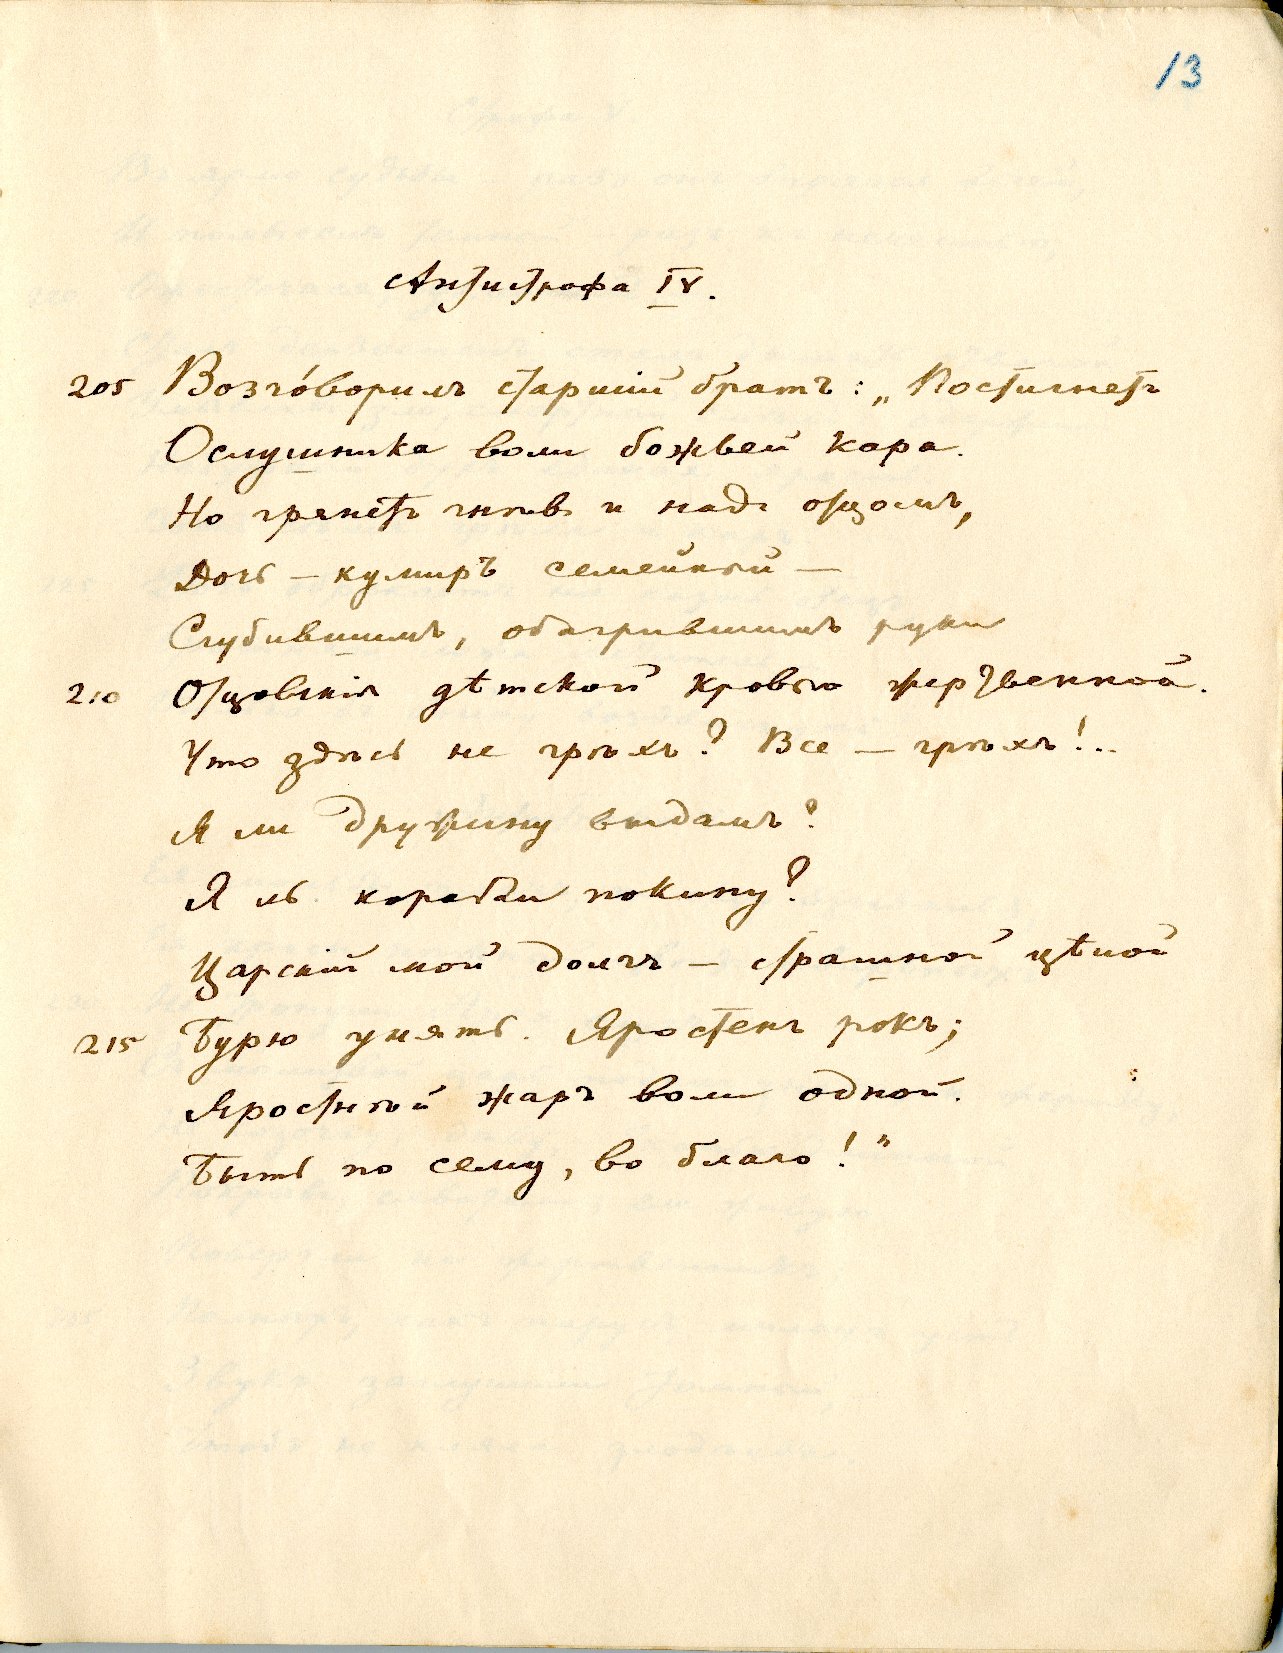 13
Антистрофа IV.
205 Возго́ворилъ старшій братъ: „Постигнетъ
Ослушника воли божьей кара.
Но грянетъ гнѣвъ и надъ отцомъ,
Дочь – кумиръ семейный –
Сгубившимъ, обагрившимъ руки
210 Отцовскія дѣтской кровью жертвенной.
Что здѣсь не грѣхъ? Все – грѣхъ!..
Я ли дружину выдамъ?
Я ль корабли покину?
Царскій мой долгъ – страшной цѣной
215 Бурю унять. Яростенъ рокъ;
Яростный жаръ воли одной.
Быть по сему, во благо!"